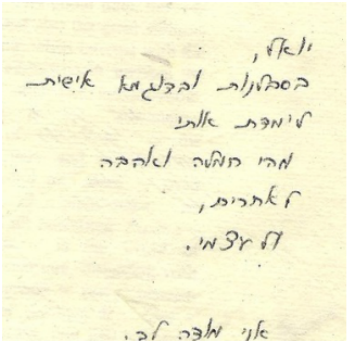 יואל,
בסבלנות ובדוגמא אישית
לימדת אותי
מהי חמלה ואהבה
לאחרים,
ולעצמי.
אני מודה לך.